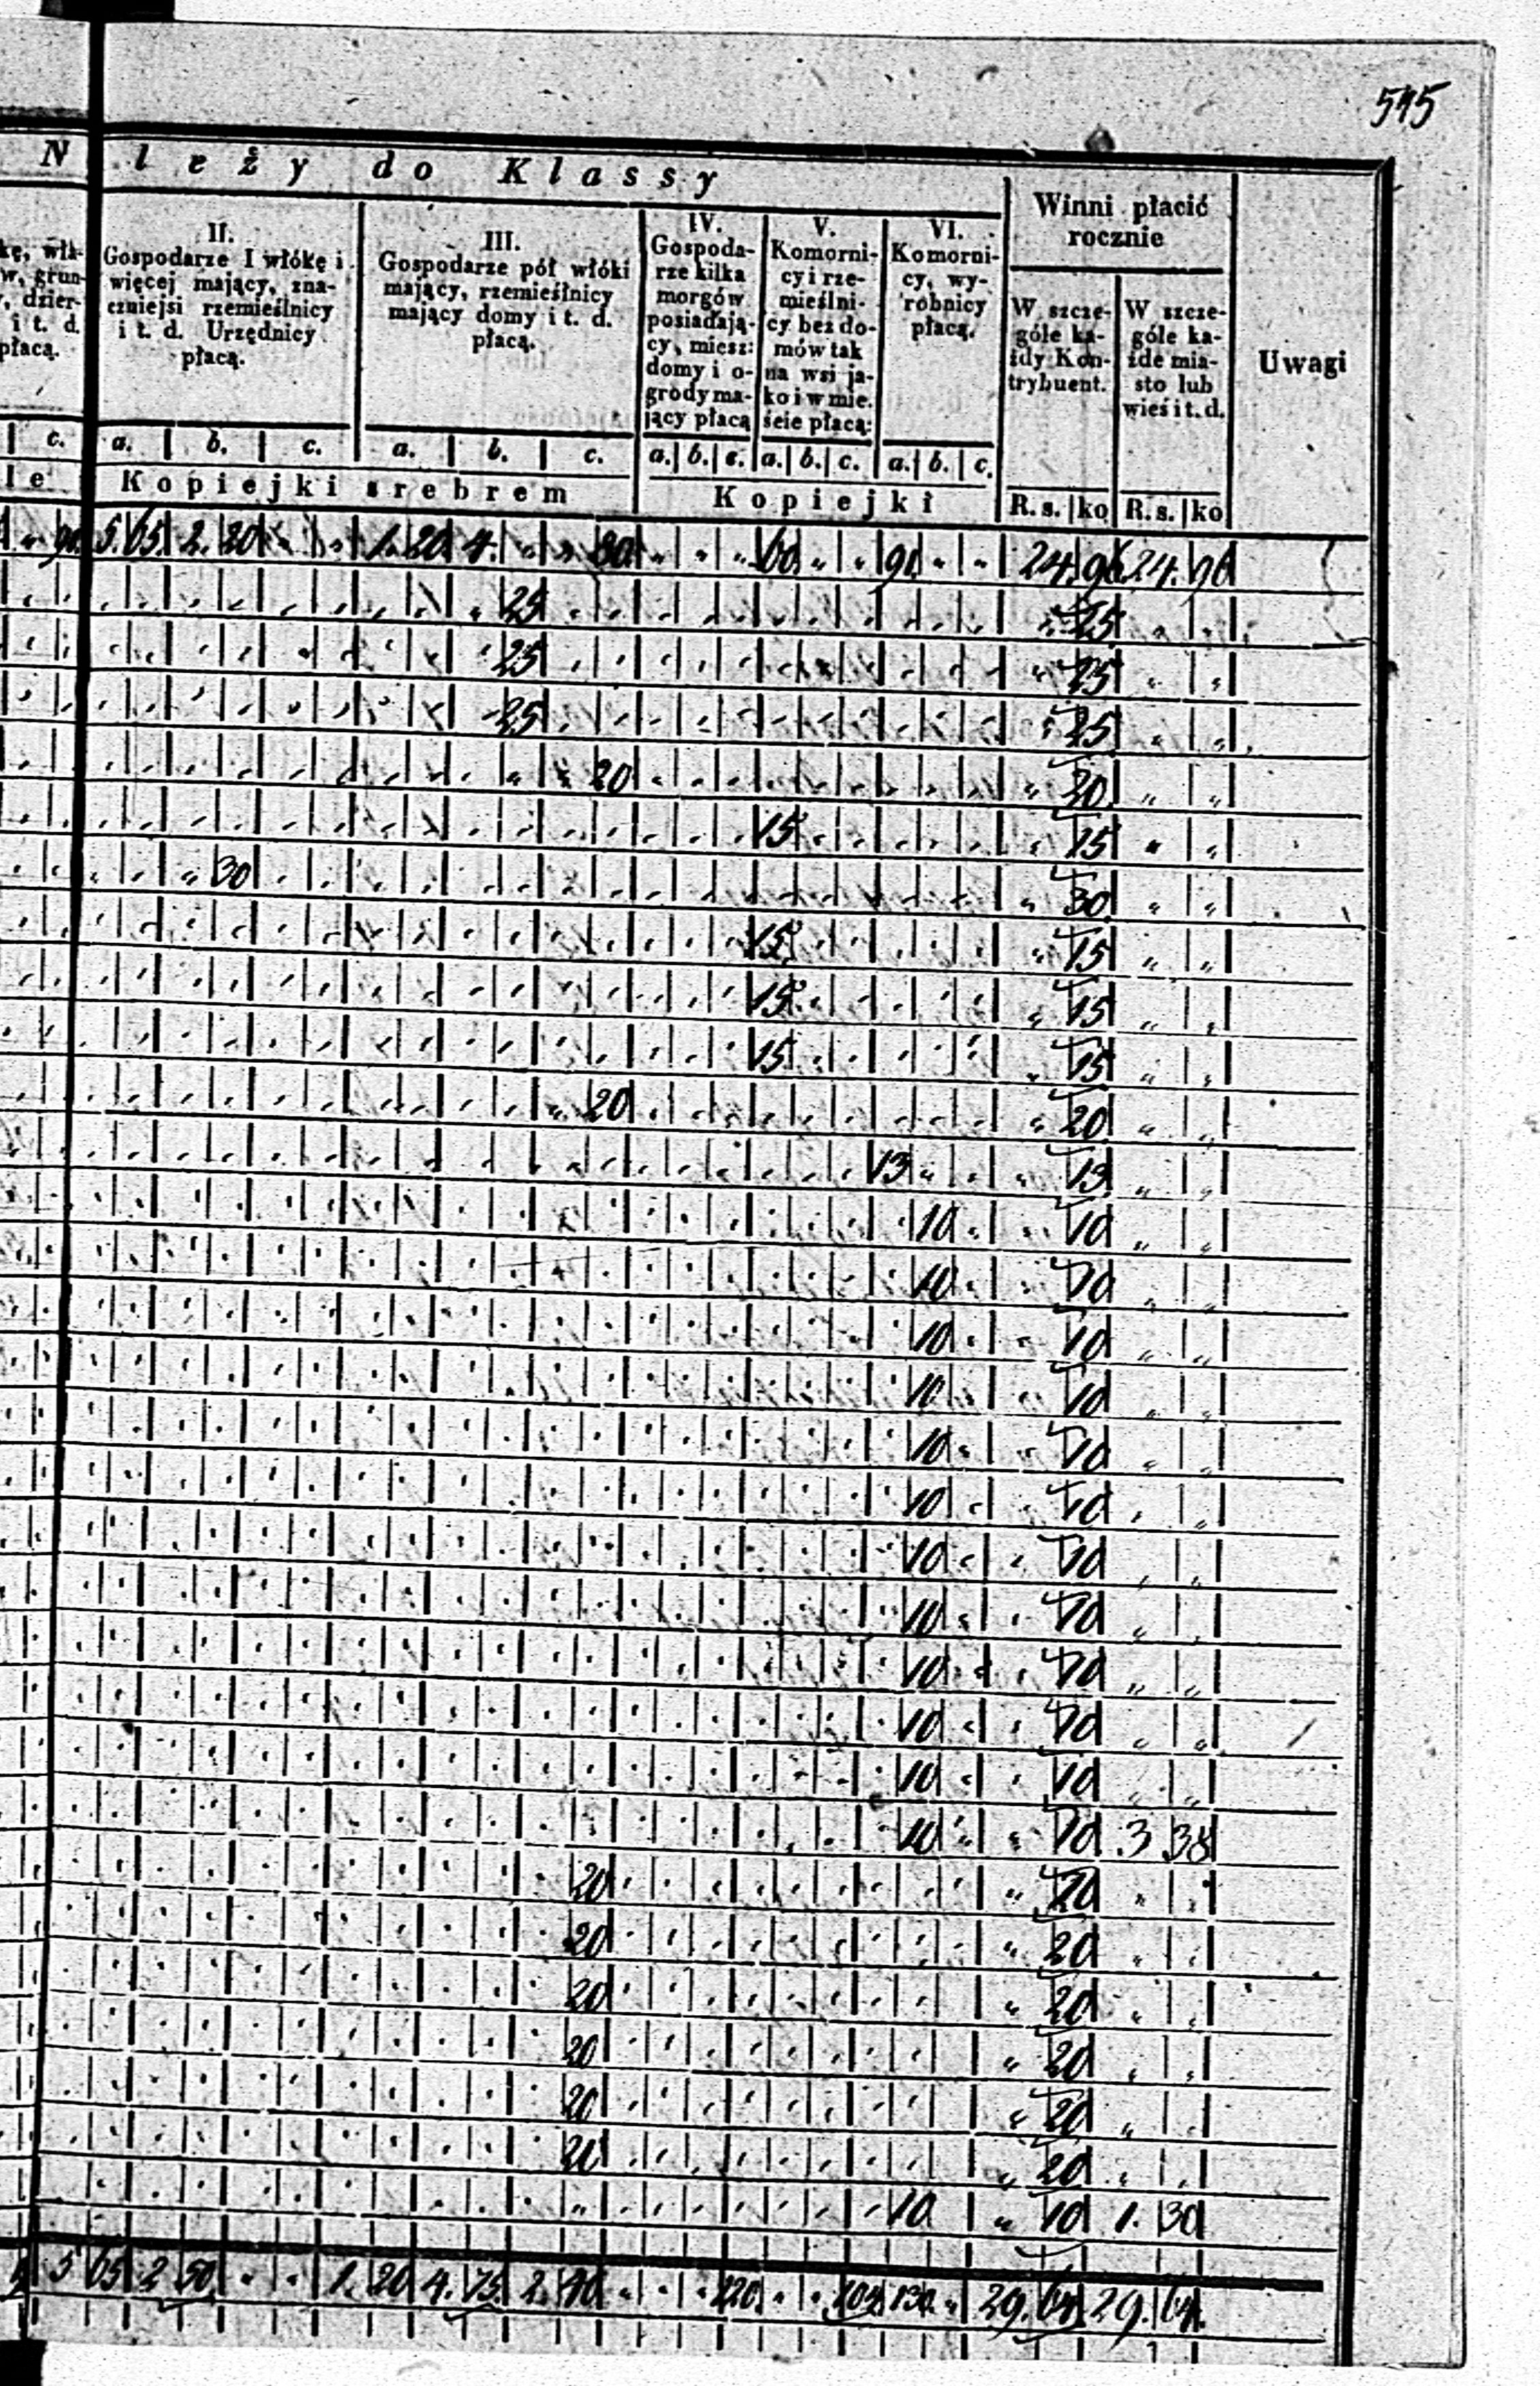 545
N leży do Klassy
Winni płacić rocznie
Uwagi
kę, włó-
w, grun-
, dzier-
i t. d.
płacą.
II.
Gospodarze I włókę i
więcej mający, zna-
czniejsi rzemieślnicy
i t. d. Urzędnicy
płacą.
III.
Gospodarze pół włóki
mający, rzemieślnicy
mający domy i t. d.
płacą.
IV.
Gospoda-
rze kilka
morgów
posiadają-
cy, miesz:
domy i o-
grody ma-
jący płacą
V.
Komorni-
cy i rze-
mieślni-
cy bez do-
mów tak
na wsi ja-
ko i w mie.
ście płacą:
VI.
Komorni-
cy, wy-
robnicy
płacą.
W szcze-
góle ka-
żdy Kon-
trybuent.
W szcze-
góle ka-
żde mia-
sto lub
wieś i t. d.
c. a. b. c. a. b. c. a. b. c. a. b. c. a. b. c.
le Kopiejki srebrem Kopiejki R. s. ko R. s. ko
90 5. 65. 2. 20 1. 20 4. 80 60 91. 24. 96 24. 96
25 25
25 25
25 25
20 20
15 15
30 30
15 15
15 15
15 15
20 20
13 13
10 10
10 10
10 10
10 10
10 10
10 10
10 10
10 10
10 10
10 10
10 10
10 10 3 38
20 20
20 20
20 20
20 20
20 20
20 20
10 10 1. 30
5 65 2 50 1. 20 4. 75. 2. 120. 104 130. 29. 64. 29. 64.